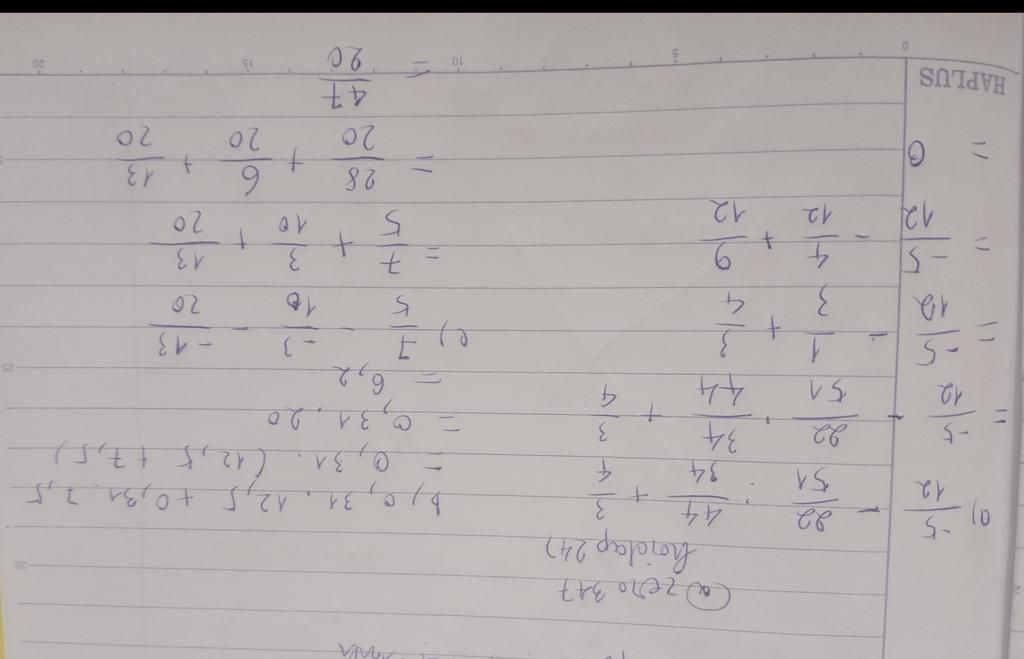 @ zezo 317
hoidap 24)
a) -5/12 - 22/51 : 44/34 + 3/4
= -5/12 - 22/51 . 34/44 + 3/4
= -5/12 - 1/3 + 3/4
= -5/12 - 4/12 + 9/12
= 0
b) 0,31 . 12,5 + 0,31 . 7,5
= 0,31 . (12,5 + 7,5)
= 0,31 . 20
= 6,2
c) 7/5 - -3/10 - -13/20
= 7/5 + 3/10 + 13/20
= 28/20 + 6/20 + 13/20
= 47/20
HAPLUS
0 5 10 15 20